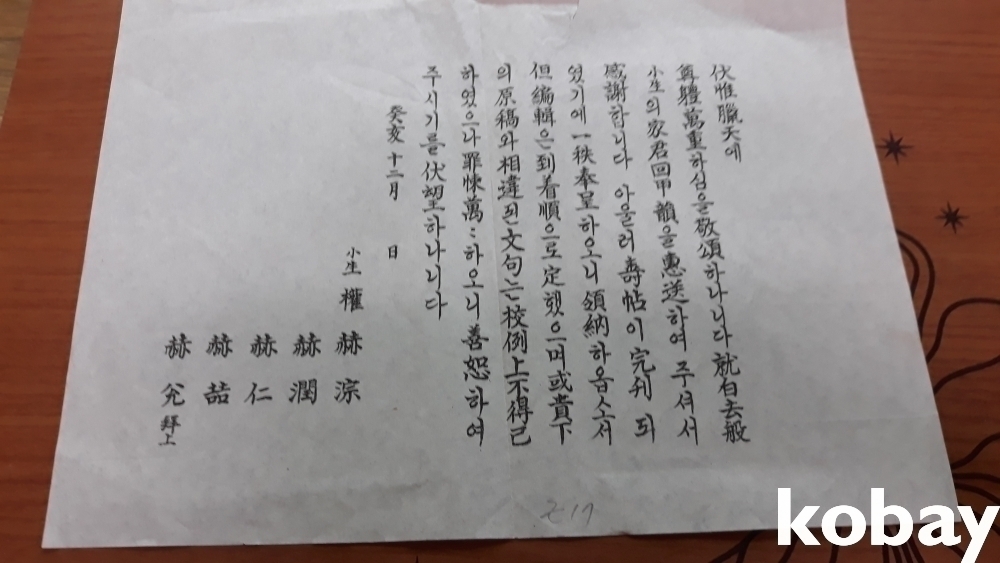 伏惟臘天에
尊軆萬重하심을敬頌하나니다就白去般
小生의家君回甲韻을惠送하여주셔서
感謝합니다 아울러壽帖이完刋되
였기에一秩奉呈하오니領納하옵소서
但編輯은到着順으로定했으며或貴下
의原稿와相違된文句는校例上不得已
하였으나罪悚萬〻하오니善恕하여
주시기를伏望하나니다
癸亥十二月 日
小生 權 赫淙
赫潤
赫仁
赫喆
赫允 拜上
kobay